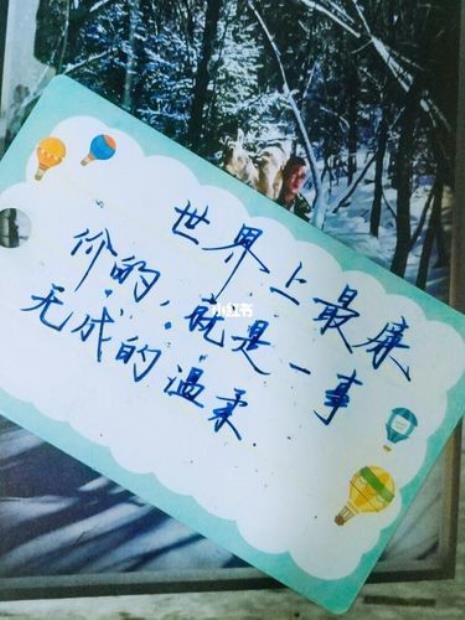 世界上最廉
价的,就是一事
无成的温柔
小红书